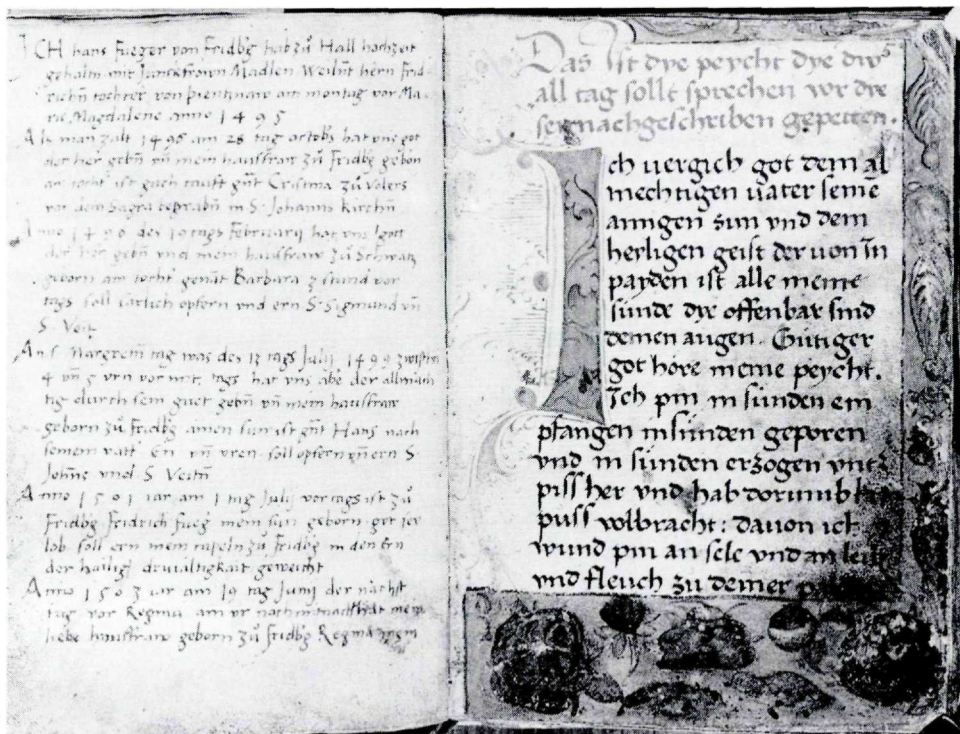 ICH hans Fueger von Fridbg hab zů Hall hochzeit
gehaltn mit Junckfrown Madlen Weilnt hern Frid-
richn tochter von Pientznaw am montag vor Ma-
rie Magdalene anno 1495
Als man zalt 1496 am 28 tag octobs hat vns got
der her gebn vn mein hausfraw zů Fridbg geborn
ain tocht ist gnant Cristina zů Volers
vor dem in S Johanns kirchn
Anno 1498 des 19 tags Februarij hat vns got
der her gebn vnd mein hausfraw zů Schwatz
geborn ain tocht genat Barbara stund vor
tags soll iarlich opfern vnd ern S Sigmund vn
S Veit
An S Margretn tag was des 12 tags Julij 1499 zwischn
4 vn 5 vrn vor mit. tags hat vns abe der allmach
tig durch sein guet gebn vn mein hausfraw
geborn zů Fridbg ainen sun ist gnt Hans nach
seinem vatt vn vren soll opfern vn ern S
Johns vnd S Veitn
Anno 1501 iar am 1 tag Julij vor tags ist zů
Fridbg Fridrich fueg mein sun geborn got sey
lob soll ern mein tafeln zů Fridbg in den ern
der hailig drivaltigkait geweicht
Anno 1503 iar am 19 tag Junij der nachst
tag vor Regina am vr nach mitnacht hat mein
liebe hausfraw geborn zů Fridbg Regina
Das Ist dye peycht dye diw
all tag sollt sprechen vor die
sernachgeschriben gepetten.
Ich uergich got dem al
mechtigen uater seine
ainigen Sun vnd dem
heyligen geist der uon in
payden ist alle meine
sünde die offenbar sind
deinen augen. Gütiger
got höre meine peycht.
Ich pin in sünden em
pfangen in sünden geporen
vnd in sünden erzogen vntz
piss her vnd hab dorumb
puss volbracht: dauon ich
wund pin an sele vnd an leib
vnd fleuch zu deiner